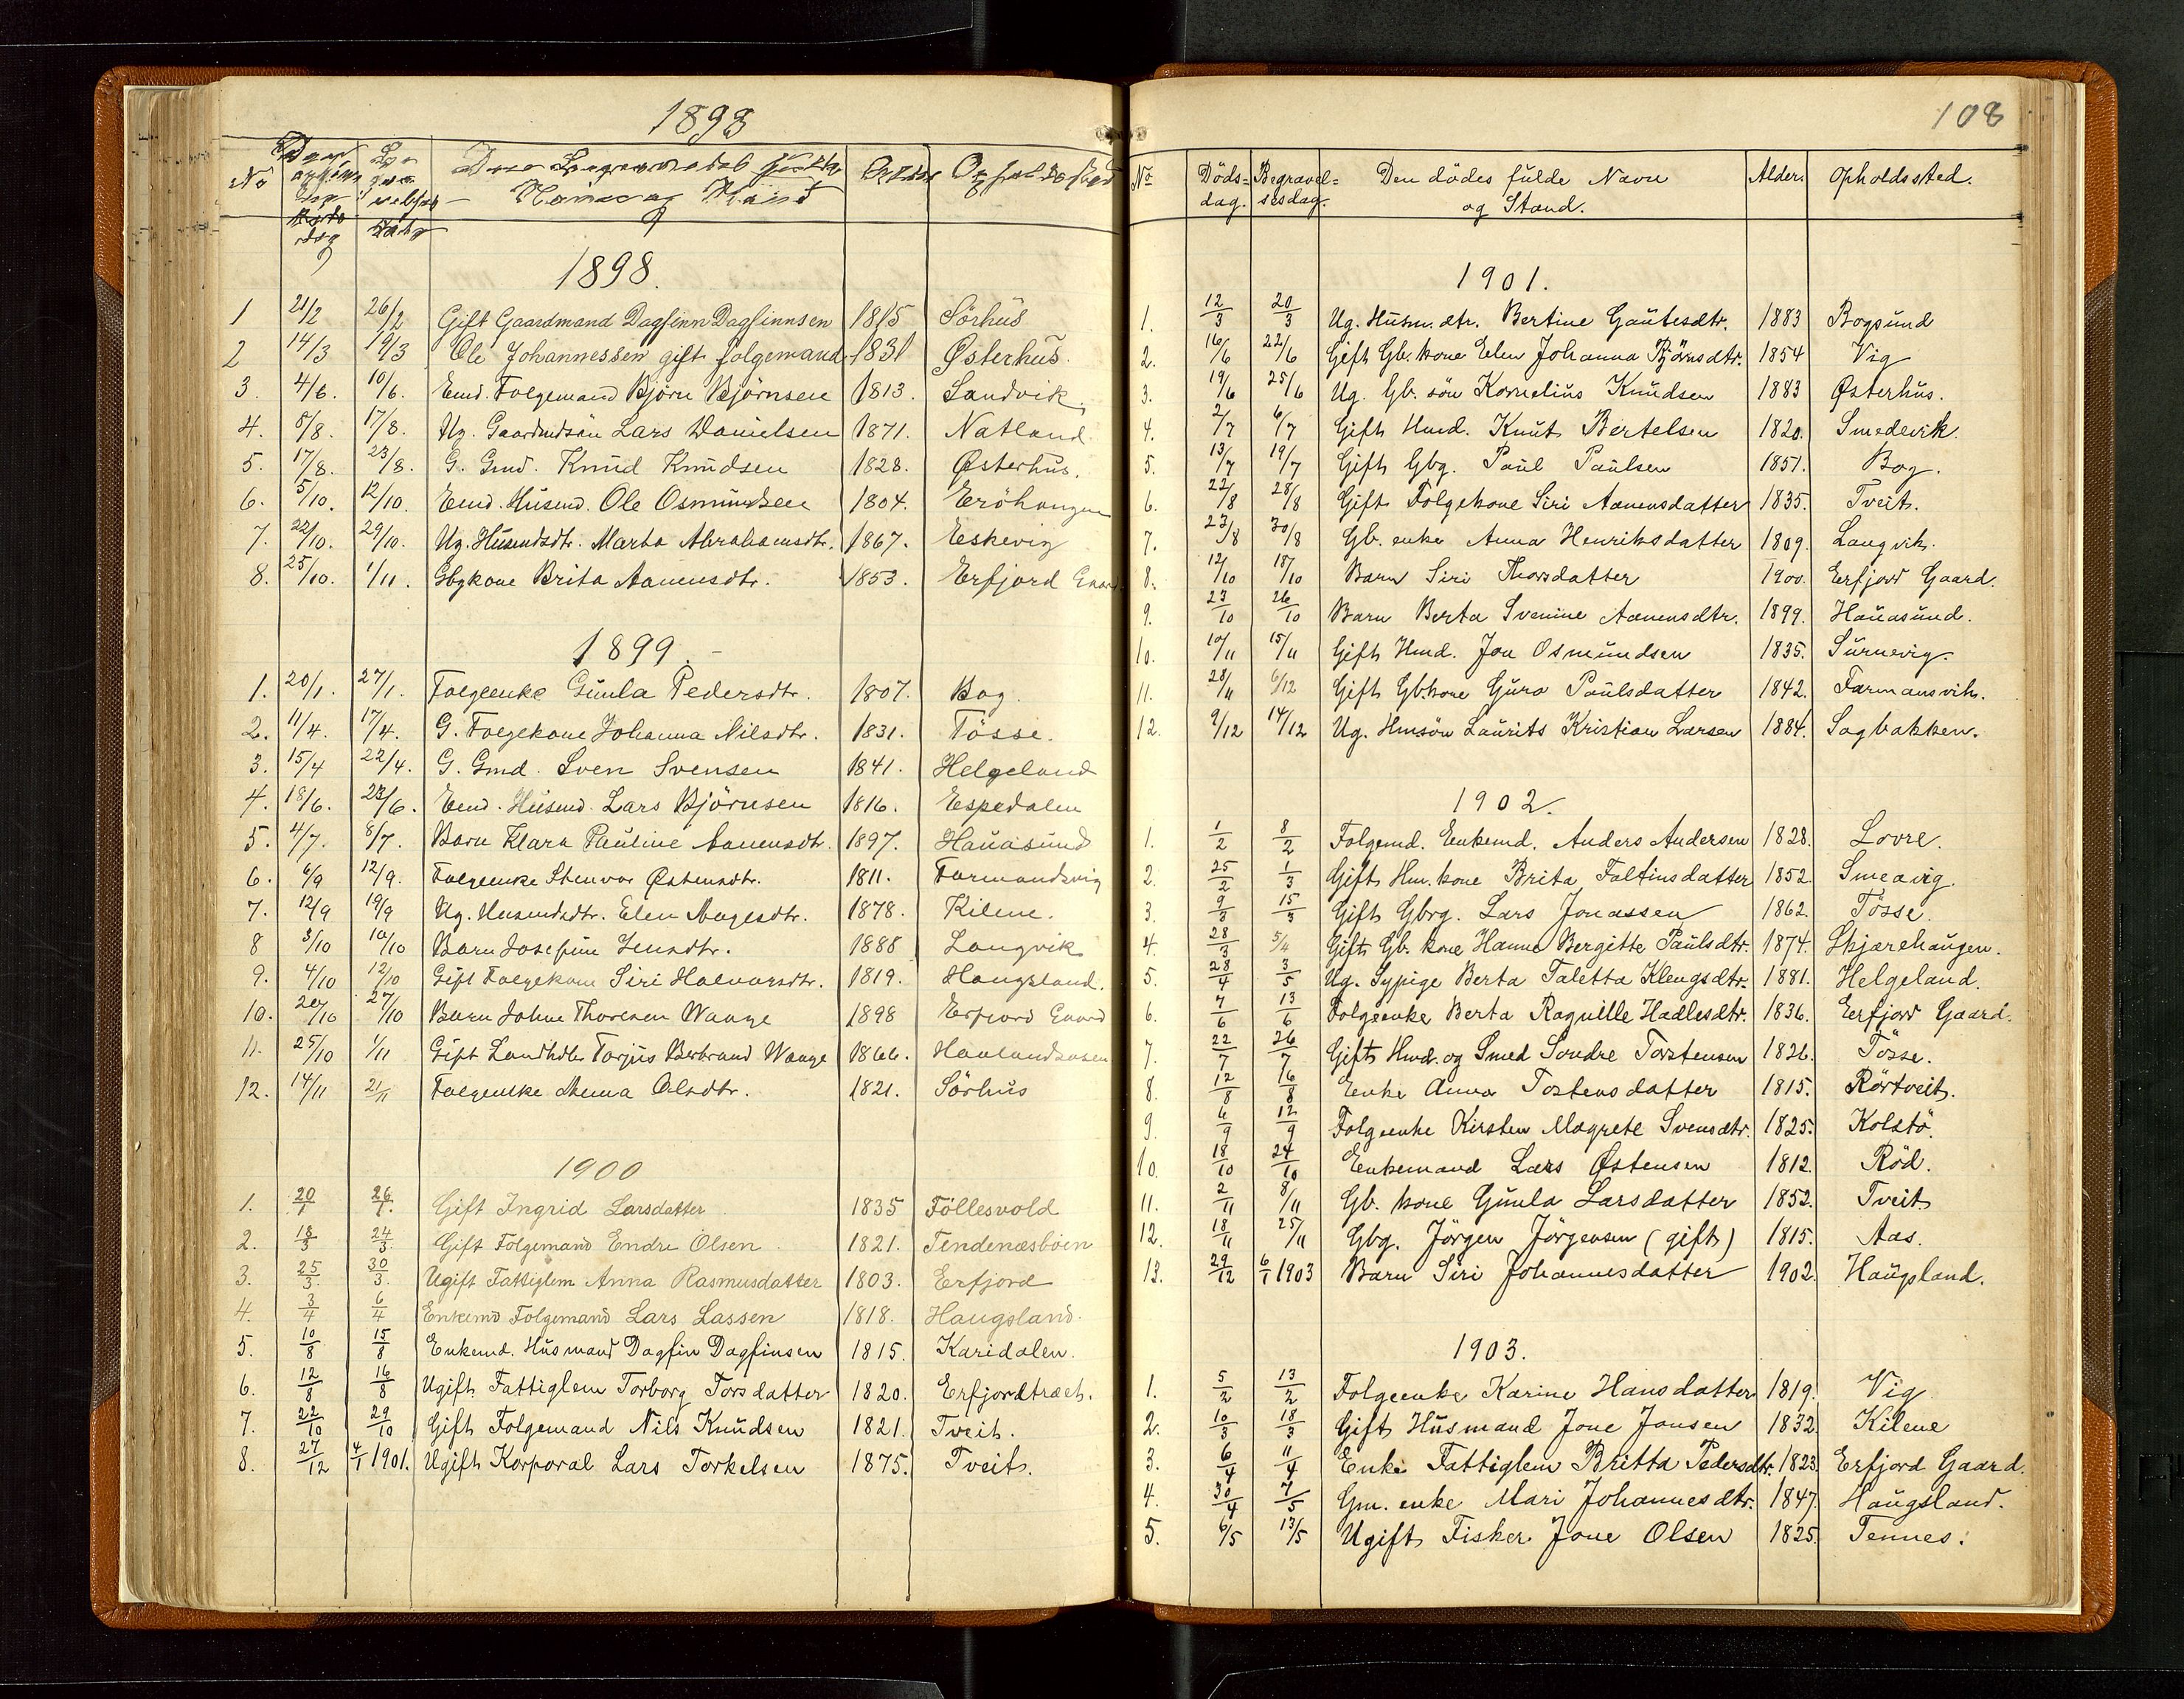 1898
No
Alder
1898.
1 21/2 26/2 Gift Gaardmand Dagfinn Dagfinnsen 1815 Sörhus
2 14/3 19/3 Ole Johannessen gift folgemand 1831 Østerhus.
3. 4/6. 10/6. Emd. Folgemand Björn Björnsen 1813. Sandvik.
4. 5/8. 17/8. Ug. Gaardmdsön Lars Danielsen 1871. Natland.
5. 17/8. 23/8. G. Gmd. Knud Knudsen 1828. Østerhus.
6. 5/10. 12/10. Emd. Husmd. Ole Osmundsen 1804. Eröhaugen
7. 22/10. 29/10. Ug. Husmdsdtr. Marta Abrahamsdtr. 1867. Eskevig
8. 25/10. 1/11. Gbgkone Brita Aanensdtr. 1853. Erfjord Gaard
1899.-
1. 20/1. 27/1. Folgeenke Gunla Pedersdtr. 1807. Bog.
2. 11/4. 17/4. G. Folgekone Johanna Nilsdtr. 1831. Tösse.
3. 15/4 22/4. G. Gmd. Sven Svensen 1841. Helgeland
4. 18/6. 23/6. Emd. Husmd. Lars Björnsen 1816. Espedalen
5. 4/7. 8/7. Barn Klara Pauline Aanensdtr. 1897. Hauasund
6. 6/9 12/9. Folgeenke Stenvor Østensdtr. 1811. Formandsvig
7. 12/9 19/9 Ug. Husmdsdtr. Elen Aagesdtr. 1878. Kilene.
8 3/10 10/10 Barn Josefine Jensdtr. 1888 Langvik
9. 4/10 12/10 Gift Folgekone Siri Halvorsdtr. 1819. Haugsland.
10. 20/10 27/10 Barn Johne Thoresen Waage 1898 Erfjord Gaard
11. 25/10 1/11 Gift Landhdlr Torjus Berbrand Waage 1866. Havlandsosen
12. 14/11 21/11 Folgeenke Anna Olsdtr. 1821. Sörhus
1900
1. 20/1 26/1. Gift Ingrid Larsdatter 1835 Föllesvold
2. 18/3 24/3. Gift Folgemand Endre Olsen 1821. Tendenæsböen
3. 25/3. 30/3. Ugift Fattiglem Anna Rasmusdatter 1803. Erfjord
4. 3/4 6/4 Enkemd Folgemand Lars Lassen 1818. Haugsland.
5. 10/8 15/8 Enkemd. Husmand Dagfin Dagfinsen 1815. Karidalen.
6. 12/8 16/8 Ugift Fattiglem Torborg Torsdatter 1820. Erfjordtræet.
7. 22/10 29/10 Gift Folgemand Nils Knudsen 1821. Tveit.
8. 27/12 4/1 1901. Ugift Korporal Lars Torkelsen 1875. Tveit.
108
No Döds=dag. Begravel=sesdag. Den dödes fulde Navn og Stand. Alder. Opholdssted.
1901.
1. 12/3 20/3 Ug. Husm.dtr. Bertine Gautesdtr. 1883 Bogsund
2. 16/6 22/6 Gift Gb. kone Elen Johanna Björnsdtr. 1854 Vig
3. 19/6 25/6 Ug. Gb. sön Kornelius Knudsen 1883 Østerhus.
4. 2/7 6/7 Gift Hmd. Knut Bertelsen 1820. Smedevik.
5. 13/7 19/7 Gift Gbg. Paul Paulsen 1851. Bog.
6. 22/8 28/8 Gift Folgekone Siri Aanensdatter 1835. Tveit.
7. 23/8 30/8 Gb. enke Anna Henriksdatter 1809. Langvik.
8. 12/10 18/10 Barn Siri Thorsdatter 1900. Erfjord Gaard.
9. 23/10 26/10 Barn Berta Svenine Aanensdtr. 1899. Hauasund.
10. 10/11 15/11 Gift Hmd. Jon Osmundsen 1835. Surnevig.
11. 28/11 6/12 Gift Gbkone Guro Paulsdatter 1842. Farmansvik.
12. 9/12 14/12 Ug. Hmsön Laurits Kristian Larsen 1884. Sagbakken.
1902.
1. 1/2 8/2 Folgemd. Enkemd. Anders Andersen 1828. Lovre.
2. 25/2 1/3 Gift Hm. kone Brita Faltinsdatter 1852. Smeavig.
3. 9/3 15/3 Gift Gbrg. Lars Jonassen 1862. Tösse.
4. 28/3 5/4 Gift Gb. kone Hanna Bergitte Paulsdtr. 1874. Skjærehaugen.
5. 28/4 3/5 Ug. Sypige Berta Taletta Klengsdtr. 1881. Helgeland.
6. 7/6 13/6 Folgeenke Berta Ragnille Hadlesdtr. 1836. Erfjord Gaard.
7. 22/7 26/7 Gift Hmd. og Smed Sondre Torstensen 1826. Tösse.
8. 12/8 16/8 Enke Anna Tostensdatter 1815. Rörtveit.
9. 6/9 12/9 Folgeenke Kirsten Magrete Svensdtr. 1825. Kolstö.
10. 18/10 24/10 Enkemand Lars Østensen 1812. Röd.
11. 2/11 8/11 Gb. kone Gunla Larsdatter 1852. Tveit
12. 18/11 25/11 Gbg. Jörgen Jörgensen (gift) 1815. Aas.
13. 29/12 6/1 1903 Barn Siri Johannesdatter 1902. Haugsland.
1903.
1. 5/2 13/2 Folgeenke Karine Hansdatter 1819. Vig
2. 10/3 18/3 Gift Husmand Jone Jonsen 1832. Kilene
3. 6/4 11/4 Enke Fattiglem Britta Pedersdtr. 1823. Erfjord Gaard.
4. 30/4 7/5 Gm. enke Mari Johannesdtr. 1847. Haugsland.
5. 6/5 13/5 Ugift Fisker Jone Olsen 1825. Tennes.